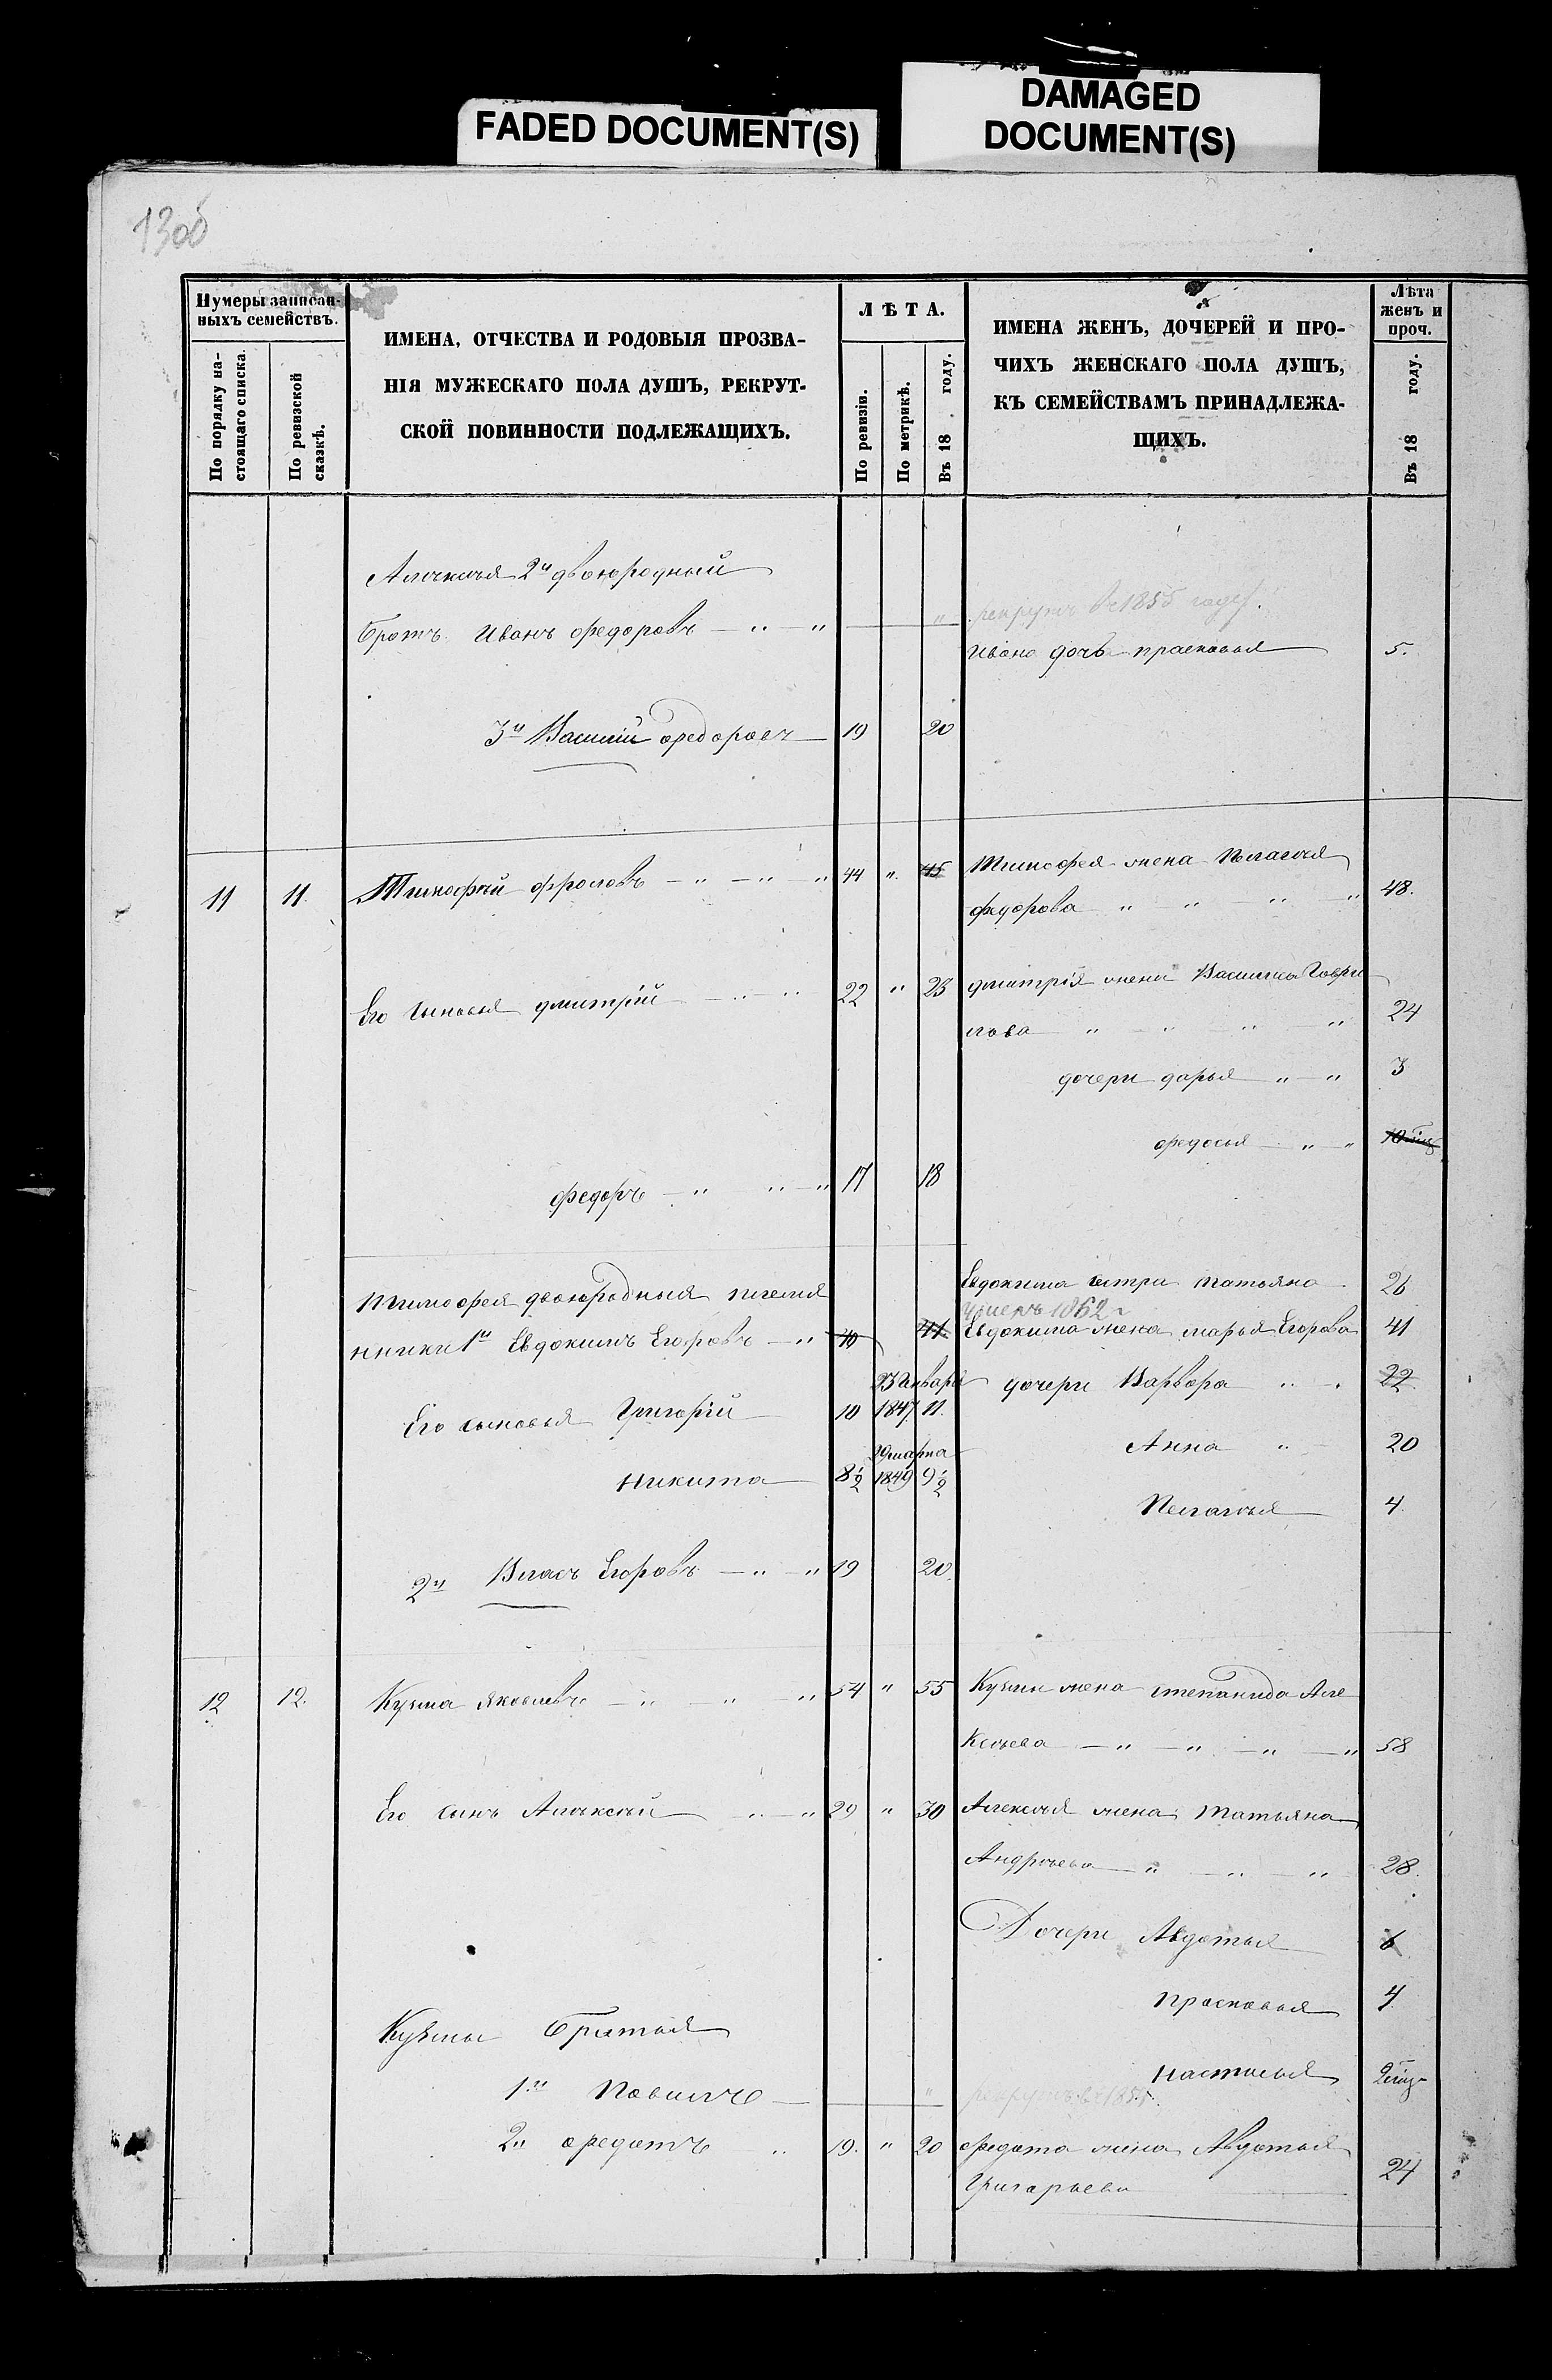 FADED DOCUMENT(S)
DAMAGED
DOCUMENT(S)
130б
Нумеры записан-
ныхъ семействъ.
По порядку на-
стоящаго списка.
По ревизской
сказкѣ.
ИМЕНА, ОТЧЕСТВА И РОДОВЫЯ ПРОЗВА-
НІЯ МУЖЕСКАГО ПОЛА ДУШЪ, РЕКРУТ-
СКОЙ ПОВИННОСТИ ПОДЛЕЖАЩИХЪ.
ЛѢТА.
По ревизіи.
По метрикѣ.
Въ 18 году.
ИМЕНА ЖЕНЪ, ДОЧЕРЕЙ И ПРО-
ЧИХЪ ЖЕНСКАГО ПОЛА ДУШЪ,
КЪ СЕМЕЙСТВАМЪ ПРИНАДЛЕЖА-
ЩИХЪ.
Лѣта
женъ и
проч.
Въ 18 году.
Алѣксѣя 2й двоюродный
братъ Иванъ федоровъ — " — " — " рекрутъ въ 1855 году.
Ивана дочь прасковья 5.
3й Василій федоровъ 19 20
11 11. Тимофѣй фроловъ — " — " — " 44 " 45 Тимофея жена Пелагѣя
федорова " " " " 48.
Его сыновья дмитрій — " — " 22 " 23 дмитрія жена Василиса Гаври
лова " " " " 24
дочери дарья " — " 3
федосья — " — "
федоръ — " " — " 17 18
Евдокима сестра татьяна 26
Тимофея двоюродныя племя
умеръ 1862 г
нники 1й Евдокимъ Егоровъ — " 40 41 Евдокима жена марья Егорова 41
23 Января дочери Варвара " " 22
Его сыновья Григорій 10 1847 11.
29 марта Анна " 20
никита 8½ 1849 9½
Пелагѣя 4.
2й Власъ Егоровъ — " — " 19 20.
12 12. Кузма яковлевъ — " — " — " 54 " 55 Кузмы жена степанида Але
ксѣева — " — " — " — " 58
Его сынъ Алѣксѣй " — " 29 " 30 Алексѣя жена татьяна
Андрѣева — " — " — " 28.
Дочери Авдотья 6
прасковья 4
Кузмы братья
настасья
1й Павилъ — " рекрутъ въ 1855.
2й федотъ " 19. " 20 федота жена Авдотья
Григарьева 24